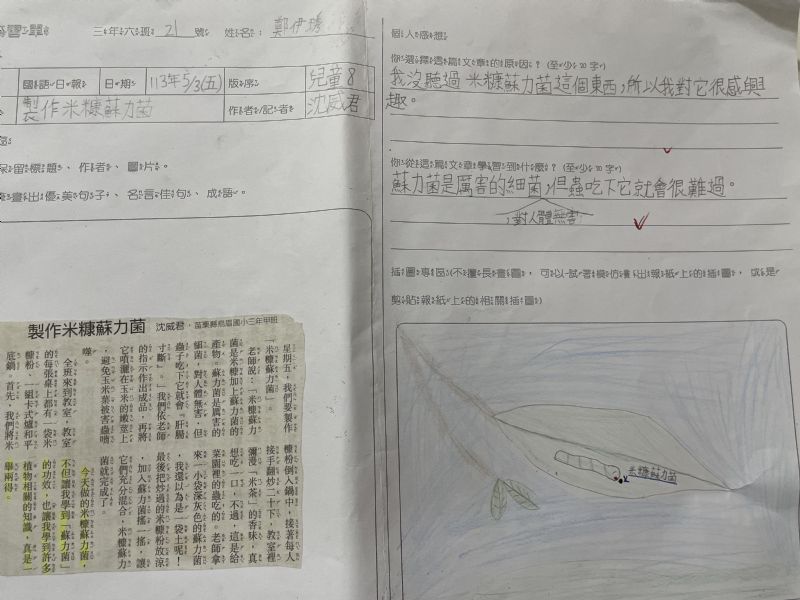 三年六班 21 號 姓名：鄭伊琇
國語日報 日期 113年5/3(五) 版序 兒童8
製作米糠蘇力菌 作者/記者 沈威君
保留標題、作者、圖片。
畫出優美句子、名言佳句、成語。
製作米糠蘇力菌 沈威君．苗栗縣烏眉國小三年甲班
星期五，我們要製作
「米糠蘇力菌」。
老師說：「米糠蘇力
菌是米糠加上蘇力菌的
產物。蘇力菌是厲害的
細菌，對人體無害，但
蟲子吃下它就會『肝腸
寸斷』。」我們依老師
的指示作出成品，再將
它噴灑在玉米的嫩莖上
，避免玉米葉被害蟲啃
噬。
全班來到教室，教室
的每張桌上都有一袋米
糠粉、一組卡式爐和平
底鍋。首先，我們將米
糠粉倒入鍋中，接著每人
接手翻炒二十下，教室裡
瀰漫「米茶」的香味，真
想吃一口，不過，這是給
菜園裡的蟲吃的。老師拿
來一小袋深灰色的蘇力菌
，我還以為是一袋土呢！
最後把炒過的米糠粉放涼
，加入蘇力菌搖一搖，讓
它們充分混合，米糠蘇力
菌就完成了。
今天做的米糠蘇力菌，
不但讓我學到「蘇力菌」
的功效，也讓我學到許多
植物相關的知識，真是一
舉兩得。
個人感想
你選擇這篇文章的原因？(至少20字)
我沒聽過 米糠蘇力菌這個東西，所以我對它很感興
趣。
你從這篇文章學習到什麼？(至少20字)
蘇力菌是厲害的細菌，但蟲吃下它就會很難過。
，對人體無害
插圖專區(不擅長畫圖，可以試著模仿畫出報紙上的插圖，或是
剪貼報紙上的相關插圖)
米糠蘇力菌